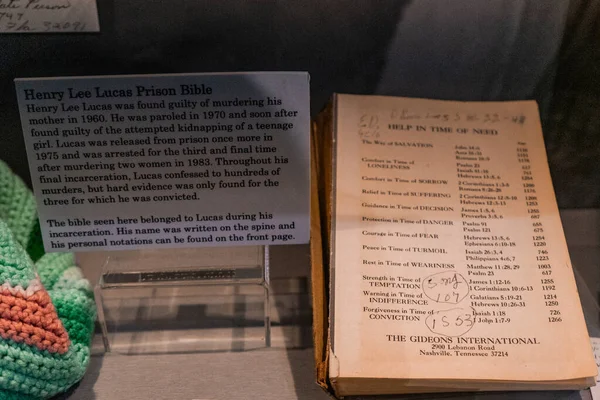 Henry Lee Lucas Prison Bible
Henry Lee Lucas was found guilty of murdering his
mother in 1960. He was paroled in 1970 and soon after
found guilty of the attempted kidnapping of a teenage
girl. Lucas was released from prison once more in
1975 and was arrested for the third and final time
after murdering two women in 1983. Throughout his
final incarceration, Lucas confessed to hundreds of
murders, but hard evidence was only found for the
three for which he was convicted.
The bible seen here belonged to Lucas during his
incarceration. His name was written on the spine and
his personal notations can be found on the front page.
HELP IN TIME OF NEED
The Way of SALVATION John 14:6
Acts 16:31
Romans 10:9
Comfort in Time of
LONELINESS Psalm 23
Isaiah 41:10
Hebrews 13:5, 6
Comfort in Time of SORROW
Romans 8:26-28
Relief in Time of SUFFERING
Hebrews 12:3-13
Guidance in Time of DECISION James 1:5, 6
Proverbs 3:5, 6
Protection in Time of DANGER Psalm 91
Psalm 121
Courage in Time of FEAR Hebrews 13:5, 6
Ephesians 6:10-18 1220
Peace in Time of TURMOIL Isaiah 26:3, 4 746
Philippians 4:6, 7
Rest in Time of WEARINESS Matthew 11:28, 29 1003
Psalm 23 637
Strength in Time of
TEMPTATION James 1:12-16 1255
I Corinthians 10:6-13 1192
Warning in Time of
INDIFFERENCE Galatians 5:19-21 1214
Hebrews 10:26-31 1250
Forgiveness in Time of
CONVICTION Isaiah 1:18 726
I John 1:7-9 1266
107
1553
THE GIDEONS INTERNATIONAL
2900 Lebanon Road
Nashville, Tennessee 37214